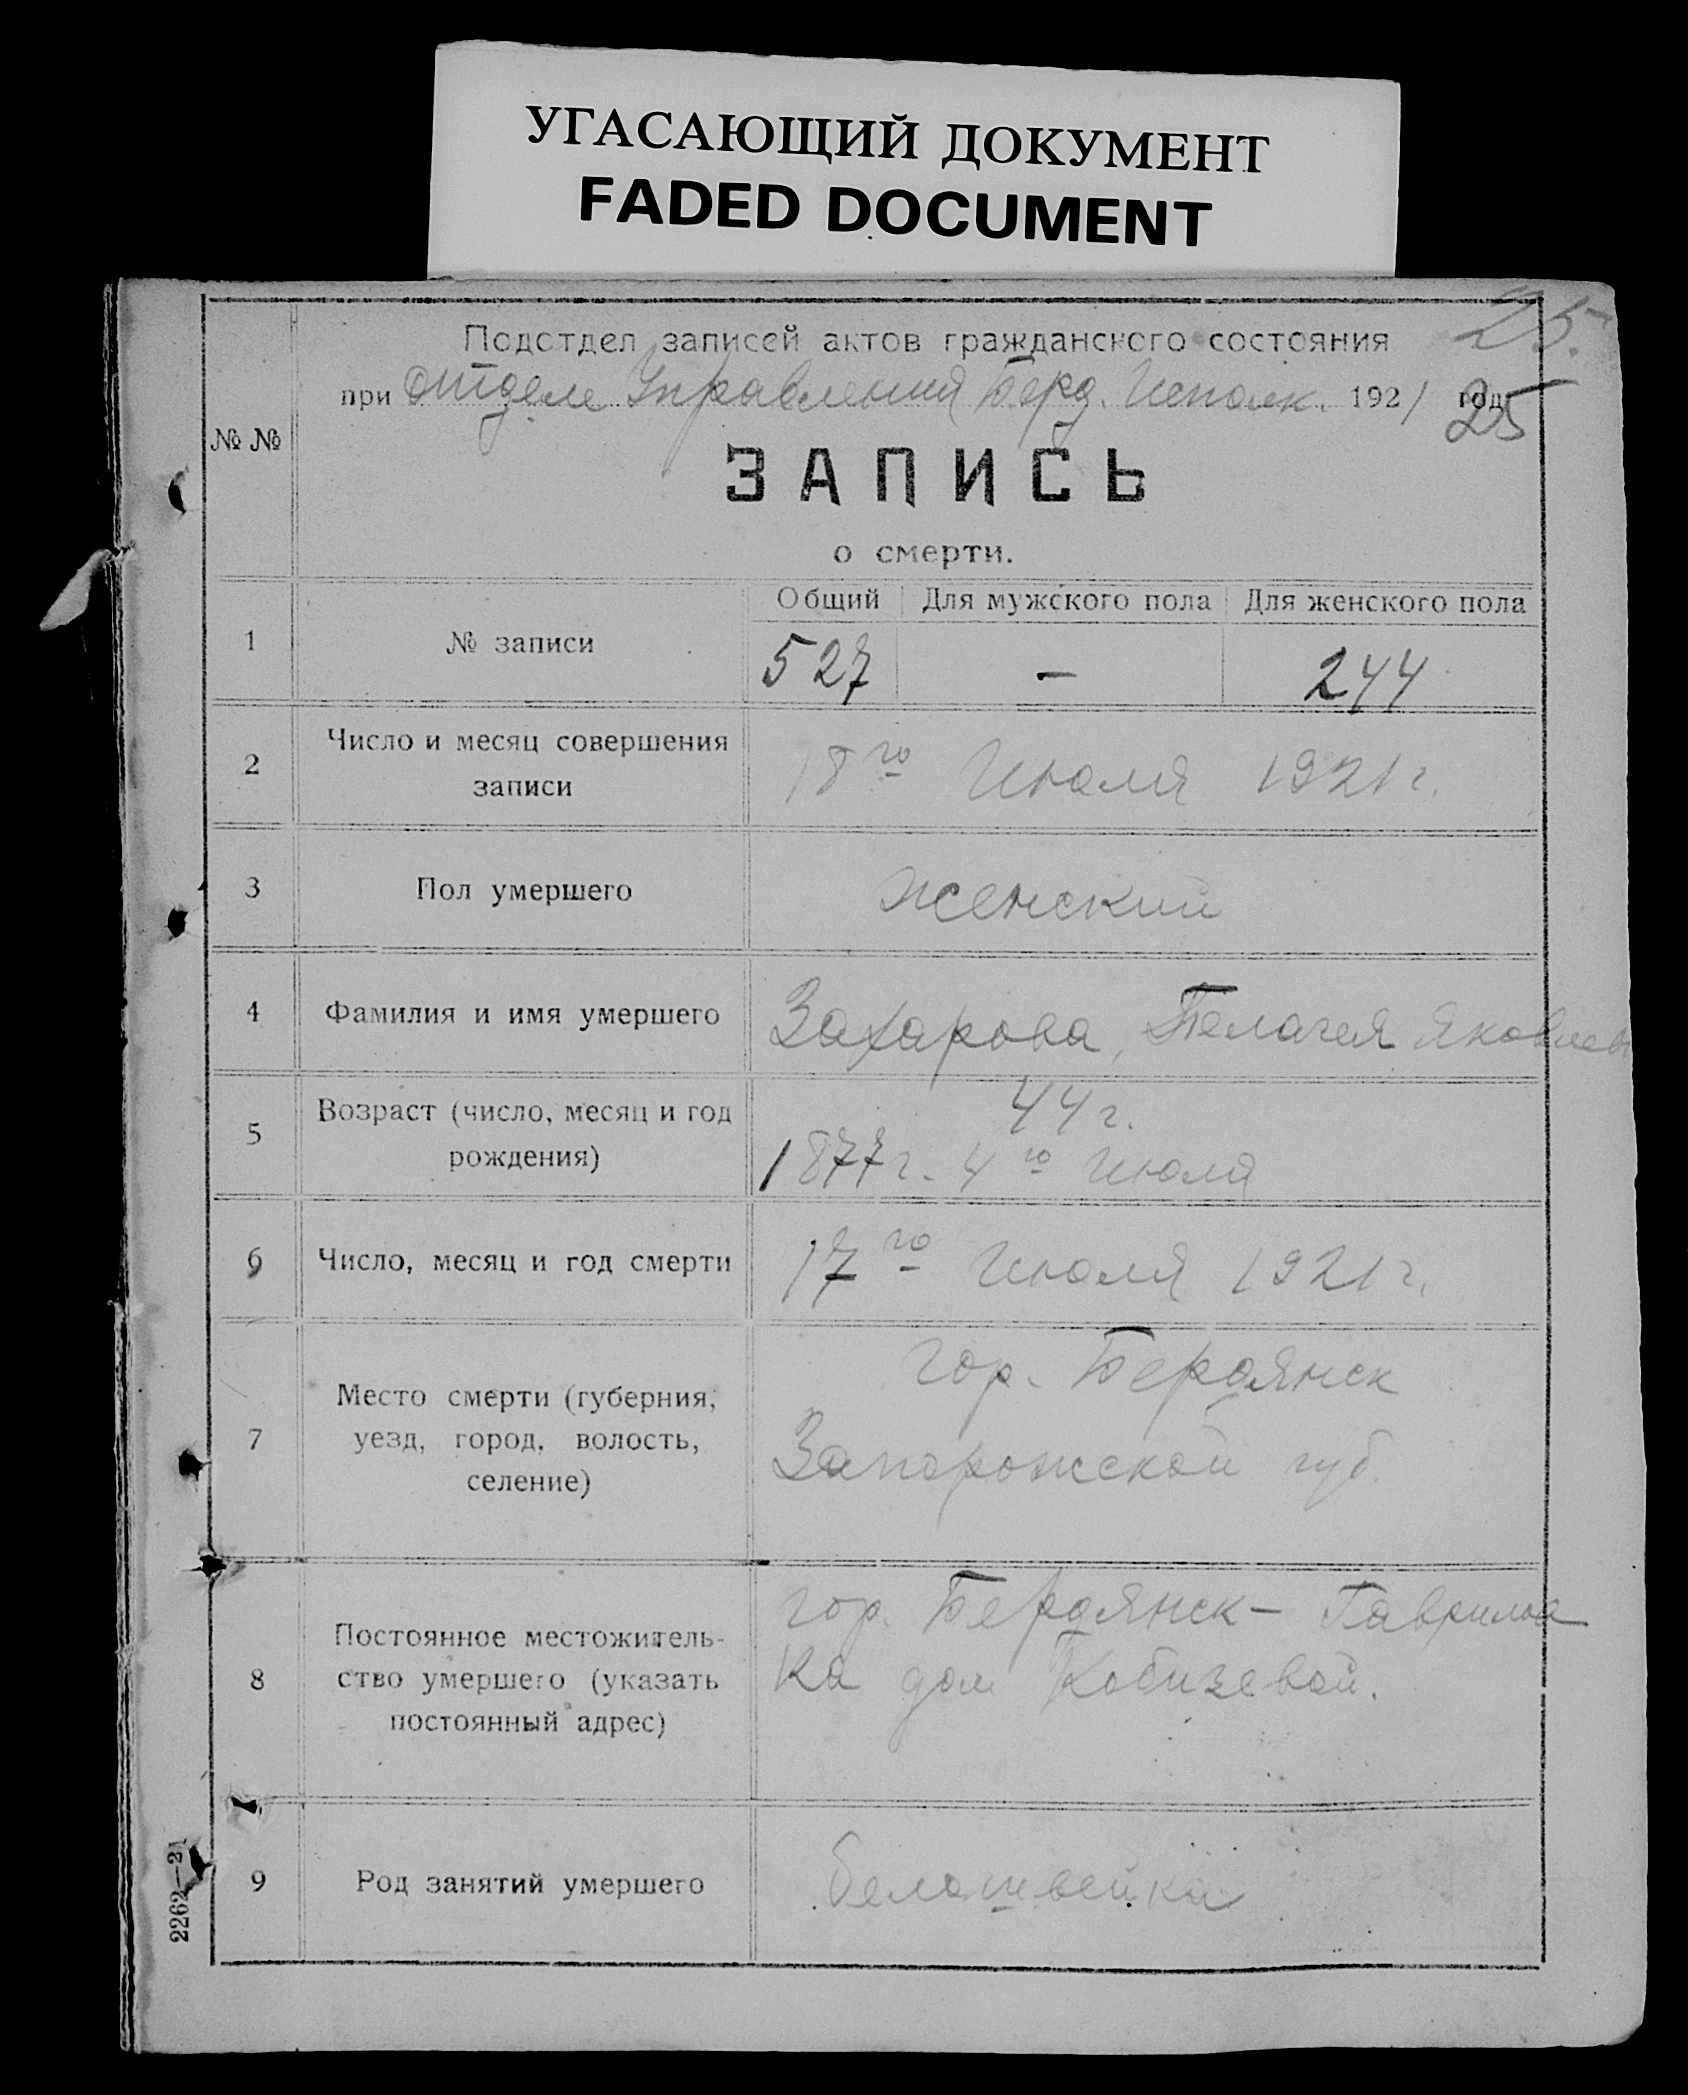 УГАСАЮЩИЙ ДОКУМЕНТ
FADED DOCUMENT
25.
Подотдел записей актов гражданского состояния
при отделе Управления Берд. Исполк. 1921 год
25
№ №
ЗАПИСЬ
о смерти.
Общий Для мужского пола Для женского пола
1 № записи 527 — 244
2 Число и месяц совершения
записи
18го Июля 1921 г.
3 Пол умершего женский
4 Фамилия и имя умершего Захарова, Пелагея Яковлев
5 Возраст (число, месяц и год
рождения)
44 г.
1877 г. 4го Июля
6 Число, месяц и год смерти 17го Июля 1921 г.
7 Место смерти (губерния,
уезд, город, волость,
селение)
гор. Бердянск
Запорожской губ.
8 Постоянное местожитель-
ство умершего (указать
постоянный адрес)
гор. Бердянск — Гаврилов
ка дом Кобизевой.
9 Род занятий умершего белошвейка
2262—21